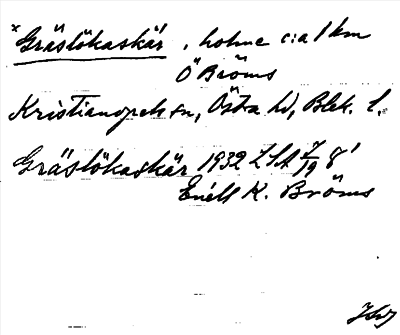 *Gräslökaskär, holme c:a 1 km
Ö Bröms
Kristianopels sn, Östra hd, Blek. l.
Gräslökaskär 1932 LSA I/19 8'
Enl. K. Bröms